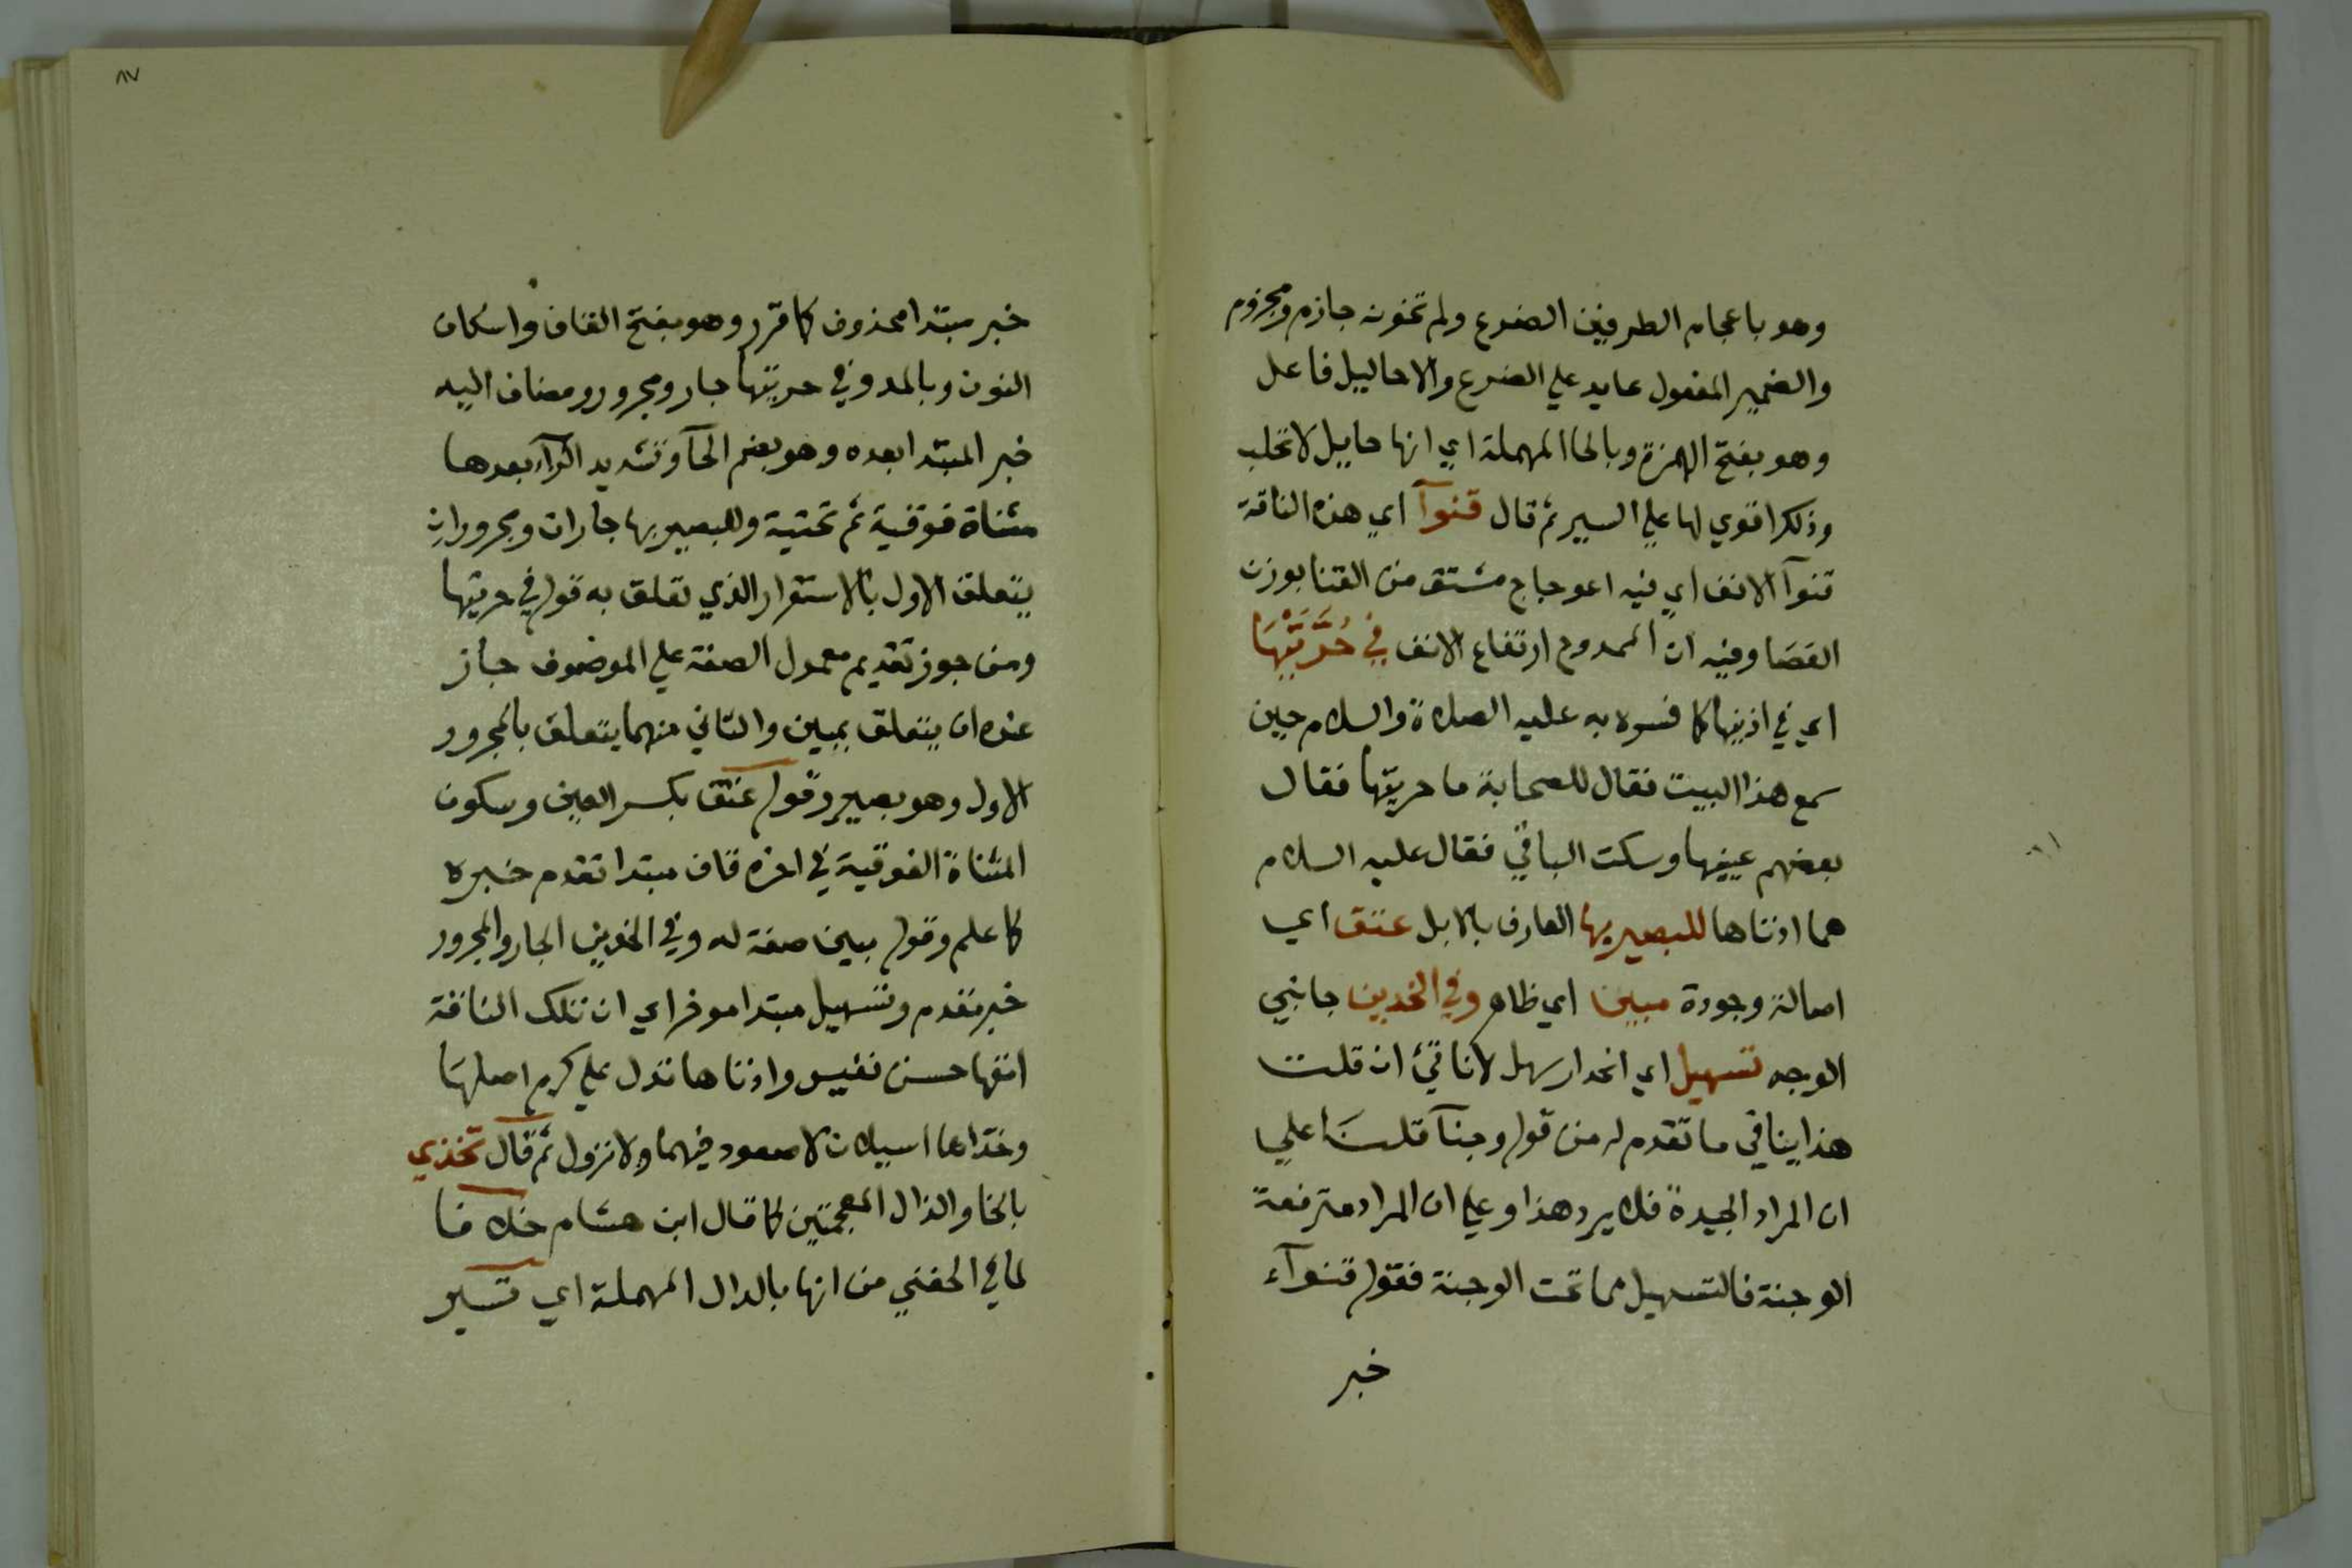 وهو باعجام الطرفين الضرع ولم تخونه جازم ومجزوم
والضمير المفعول عايد علي الضرع والاحاليل فاعل
وهو بفتح الهمزة وبالحا المهملة اي انها حايل لا تحلب
وذلك اقوي لها علي السير ثم قال قنوآ اي هذه الناقة
قنوآ الانف اي فيه اعوجاج مشتق من القنا بوزن
القصا وفيه ان الممدوح ارتفاع الانف في حُرَّتَيْهَا
اي في اذنيها كما فسره به عليه الصلاة والسلام حين
سمع هذا البيت فقال للصحابة ما حريتها فقال
بعضهم عينيها وسكت الباقي فقال عليه السلام
هما اذناها للبصير بها العارف بالابل عتق اي
اصالة وجودة مبين اي ظاهر وفي الخدين جانبي
الوجه تسهيل اي انحدار سهل لا ناتئ ان قلت
هذا ينافي ما تقدم له من قوله وجنآ قلت علي
ان المراد الجيدة فلا يرد هذا وعلي ان المراد مترفعة
الوجنة فالتسهيل مما تحت الوجنة فقوله قنوآء
خبر
٨٧
خبر مبتدا محذوف كما قرر وهو بفتح القاف واسكان
النون وبالمد وفي حريتها جار ومجرور ومضاف اليه
خبر المبتدا بعده وهو بضم الحآ وتشديد الرآء بعدها
مثناة فوقية ثم تحتية وللبصير بها جاران ومجروران
يتعلق الاول بالاستقرار الذي تعلق به قوله في حريتها
ومن جوز تقديم معمول الصفة علي الموصوف جاز
عنده ان يتعلق بمبين والثاني منهما يتعلق بالمجرور
الاول وهو بصير وقوله عتق بكسر العين وسكون
المثناة الفوقية في اخره قاف مبتدا تقدم خبره
كما علم وقوله مبين صفة له وفي الخدين الجار والمجرور
خبر مقدم وتسهيل مبتدا موخر اي ان تلك الناقة
انفها حسن نفيس واذناها تدل علي كرم اصلها
وخداها اسيلان لا صعود فيهما ولا نزول ثم قال تخذي
بالخا والذال المعجمتين كما قال ابن هشام خلافا
لما في الحفني من انها بالدال المهملة اي تسير